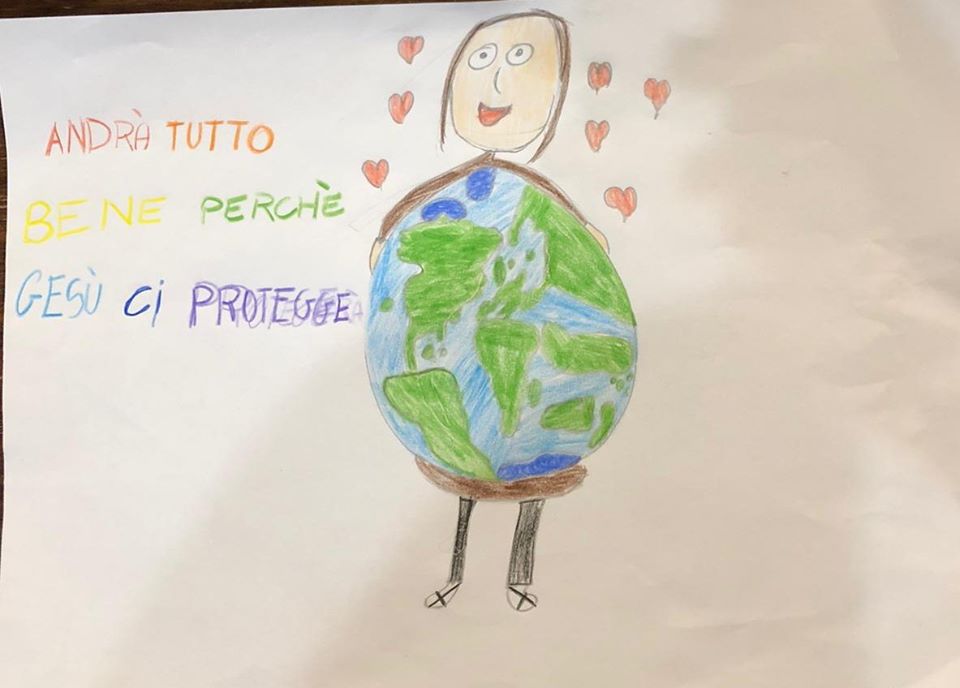 ANDRÀ TUTTO
BENE PERCHÈ
GESÙ CI PROTEGGE